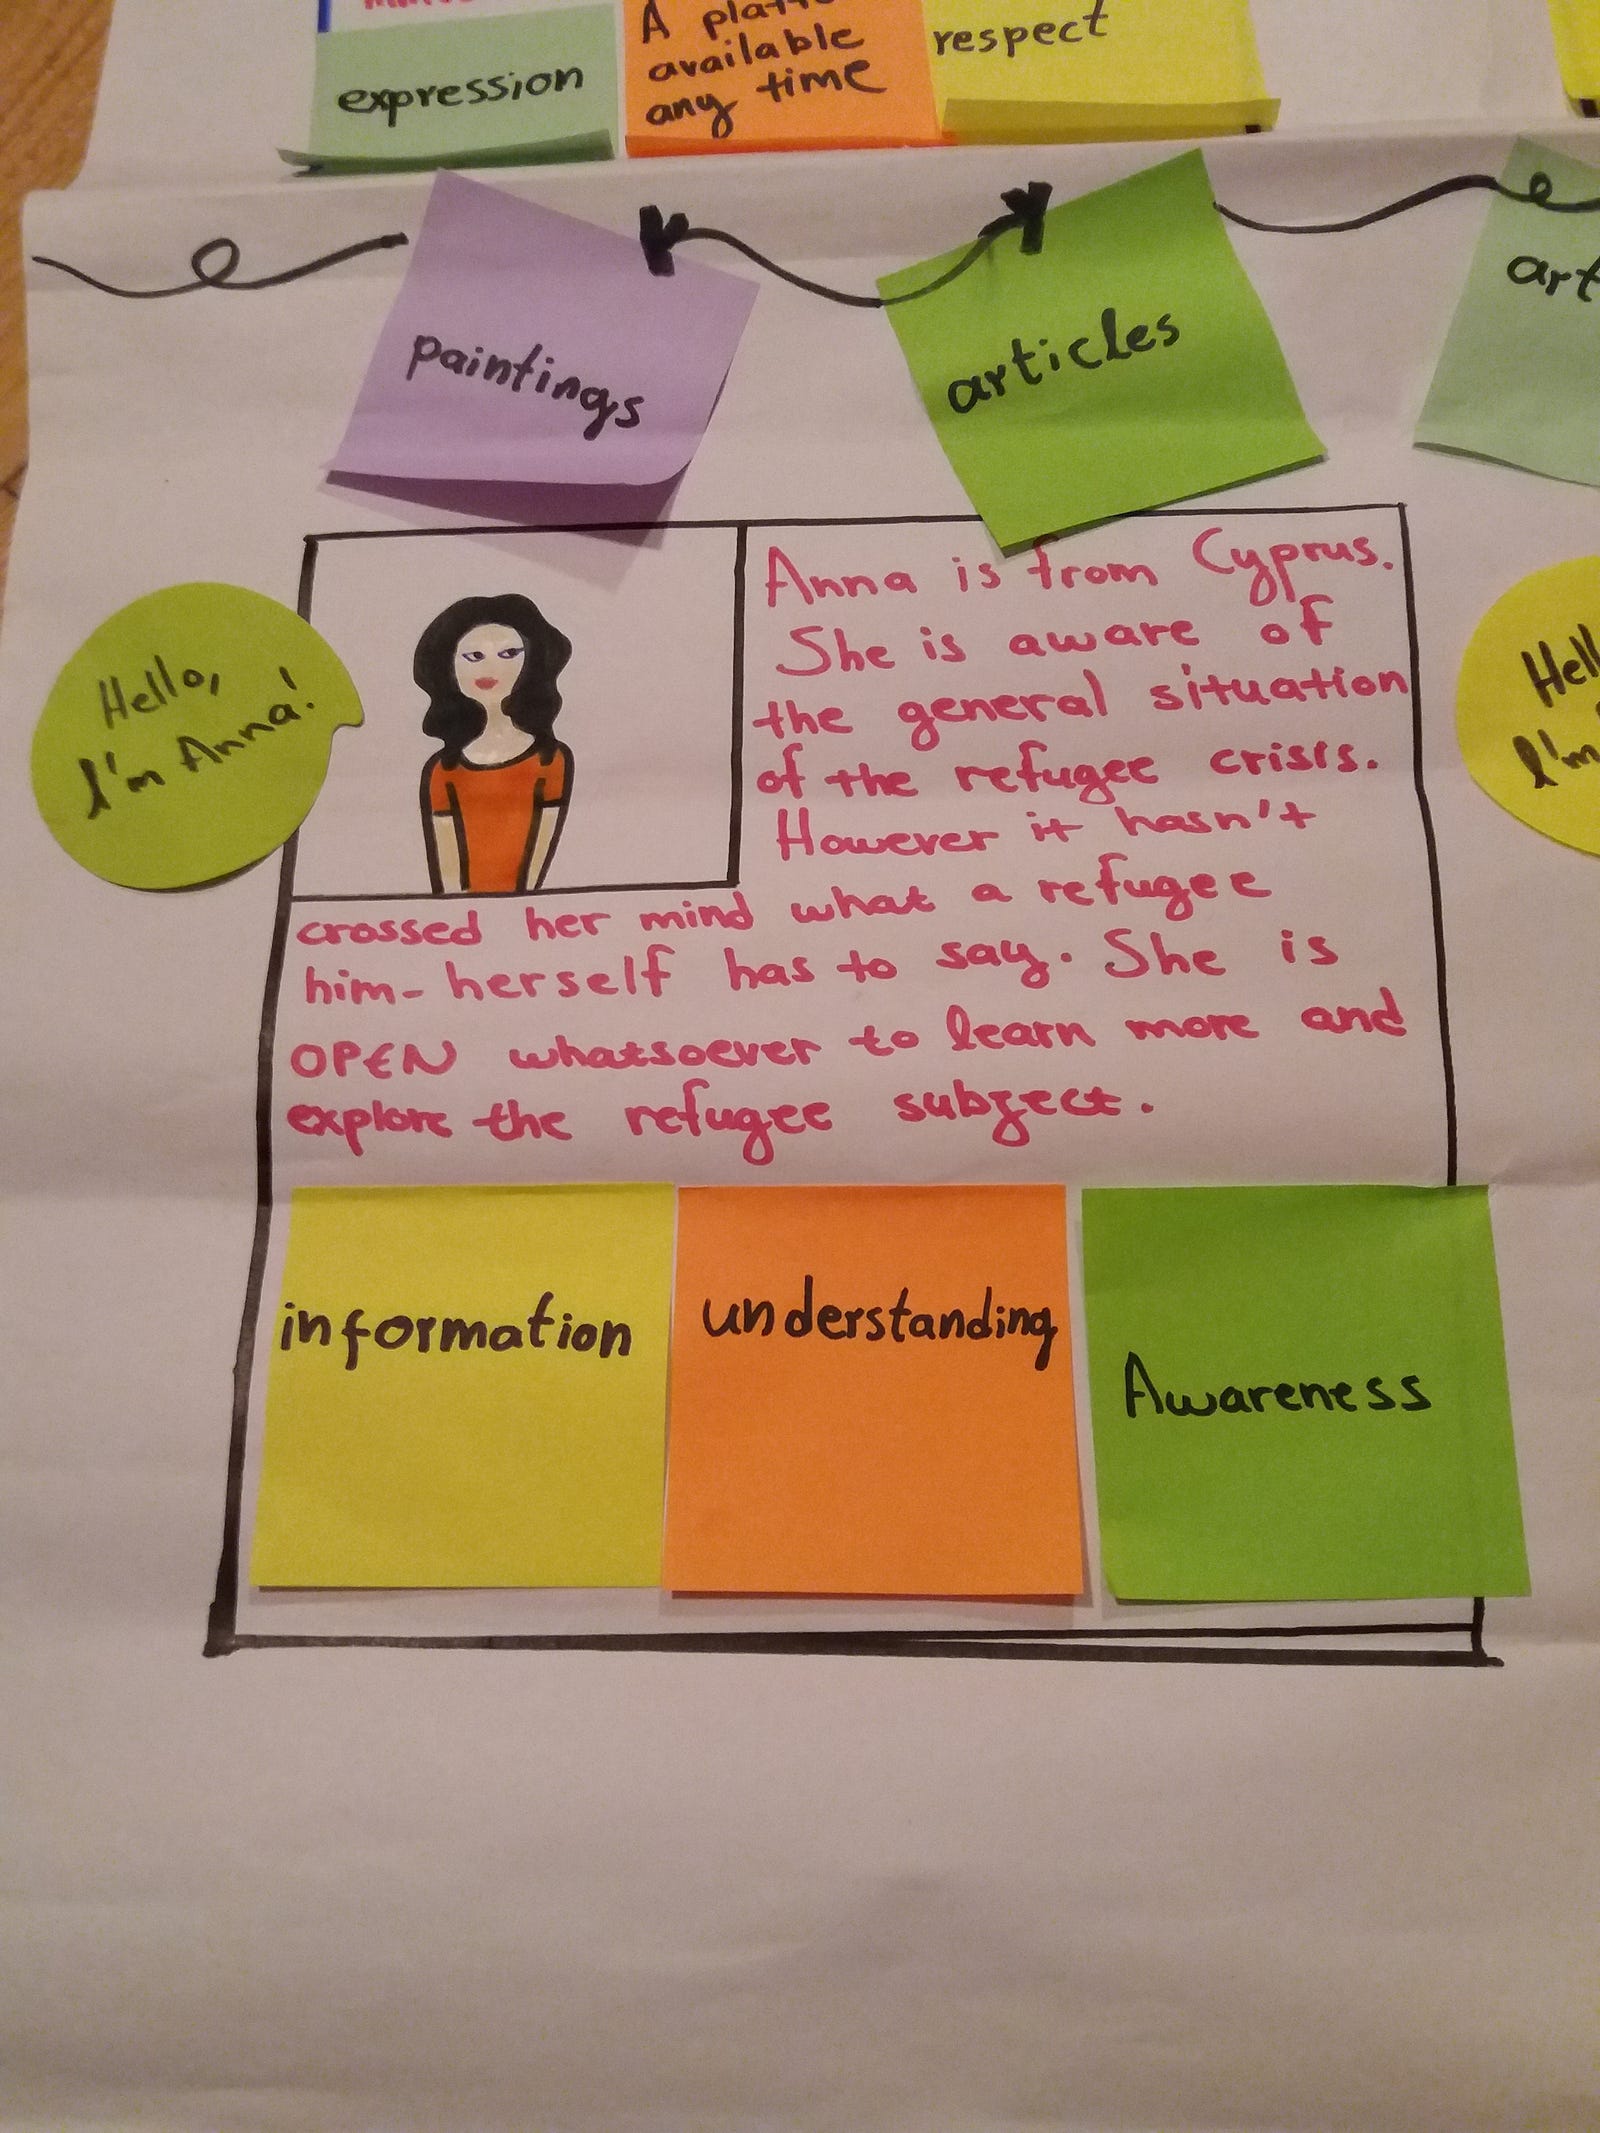 expression
A
available
any time
respect
paintings
articles
Hello,
I'm Anna!
Anna is from Cyprus.
She is aware of
the general situation
of the refugee crisis.
However it hasn't
crossed her mind what a refugee
him-herself has to say. She is
OPEN whatsoever to learn more and
explore the refugee subject.
I'm
information
understanding
Awareness